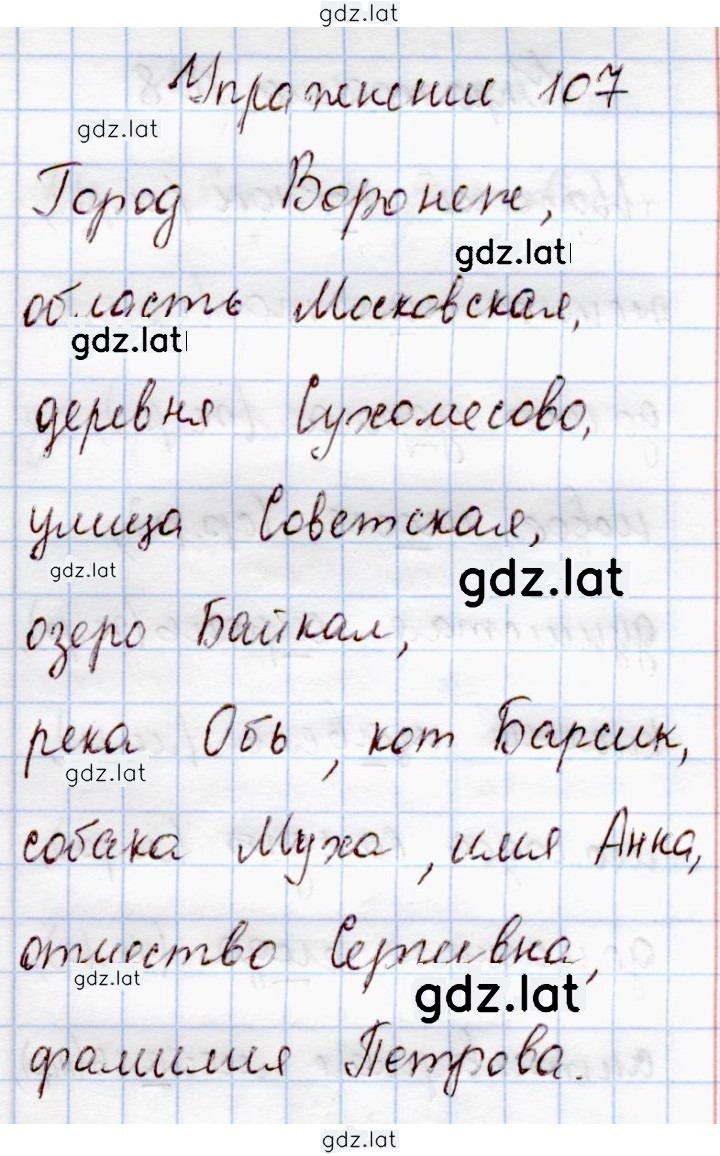 gdz.lat
Упражнение 107
gdz.lat
Город Воронеж,
gdz.lat
область Московская,
gdz.lat
деревня Сухомесово,
улица Советская,
gdz.lat
gdz.lat
озеро Байкал,
река Обь, кот Барсик,
gdz.lat
собака Муха, имя Анна,
отчество Сергеевна,
gdz.lat
gdz.lat
фамилия Петрова.
gdz.lat